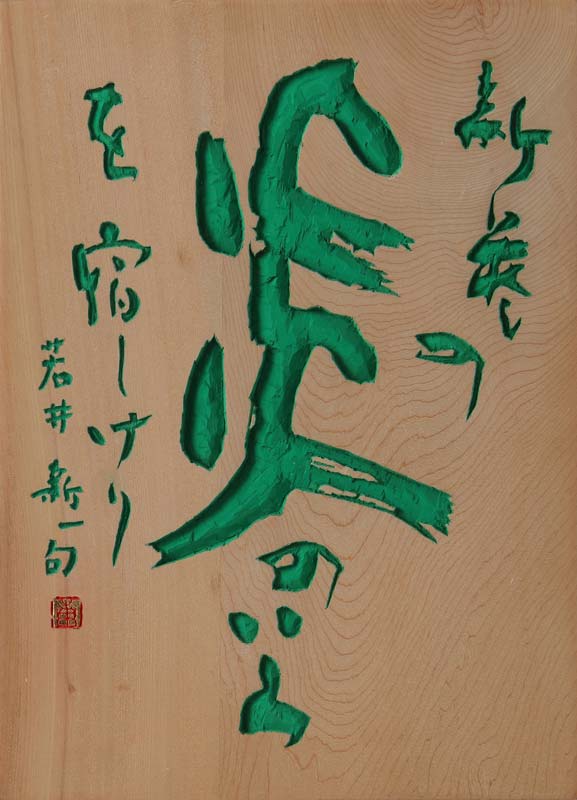 新の
炎
のいろ
を宿しけり
若井新一句